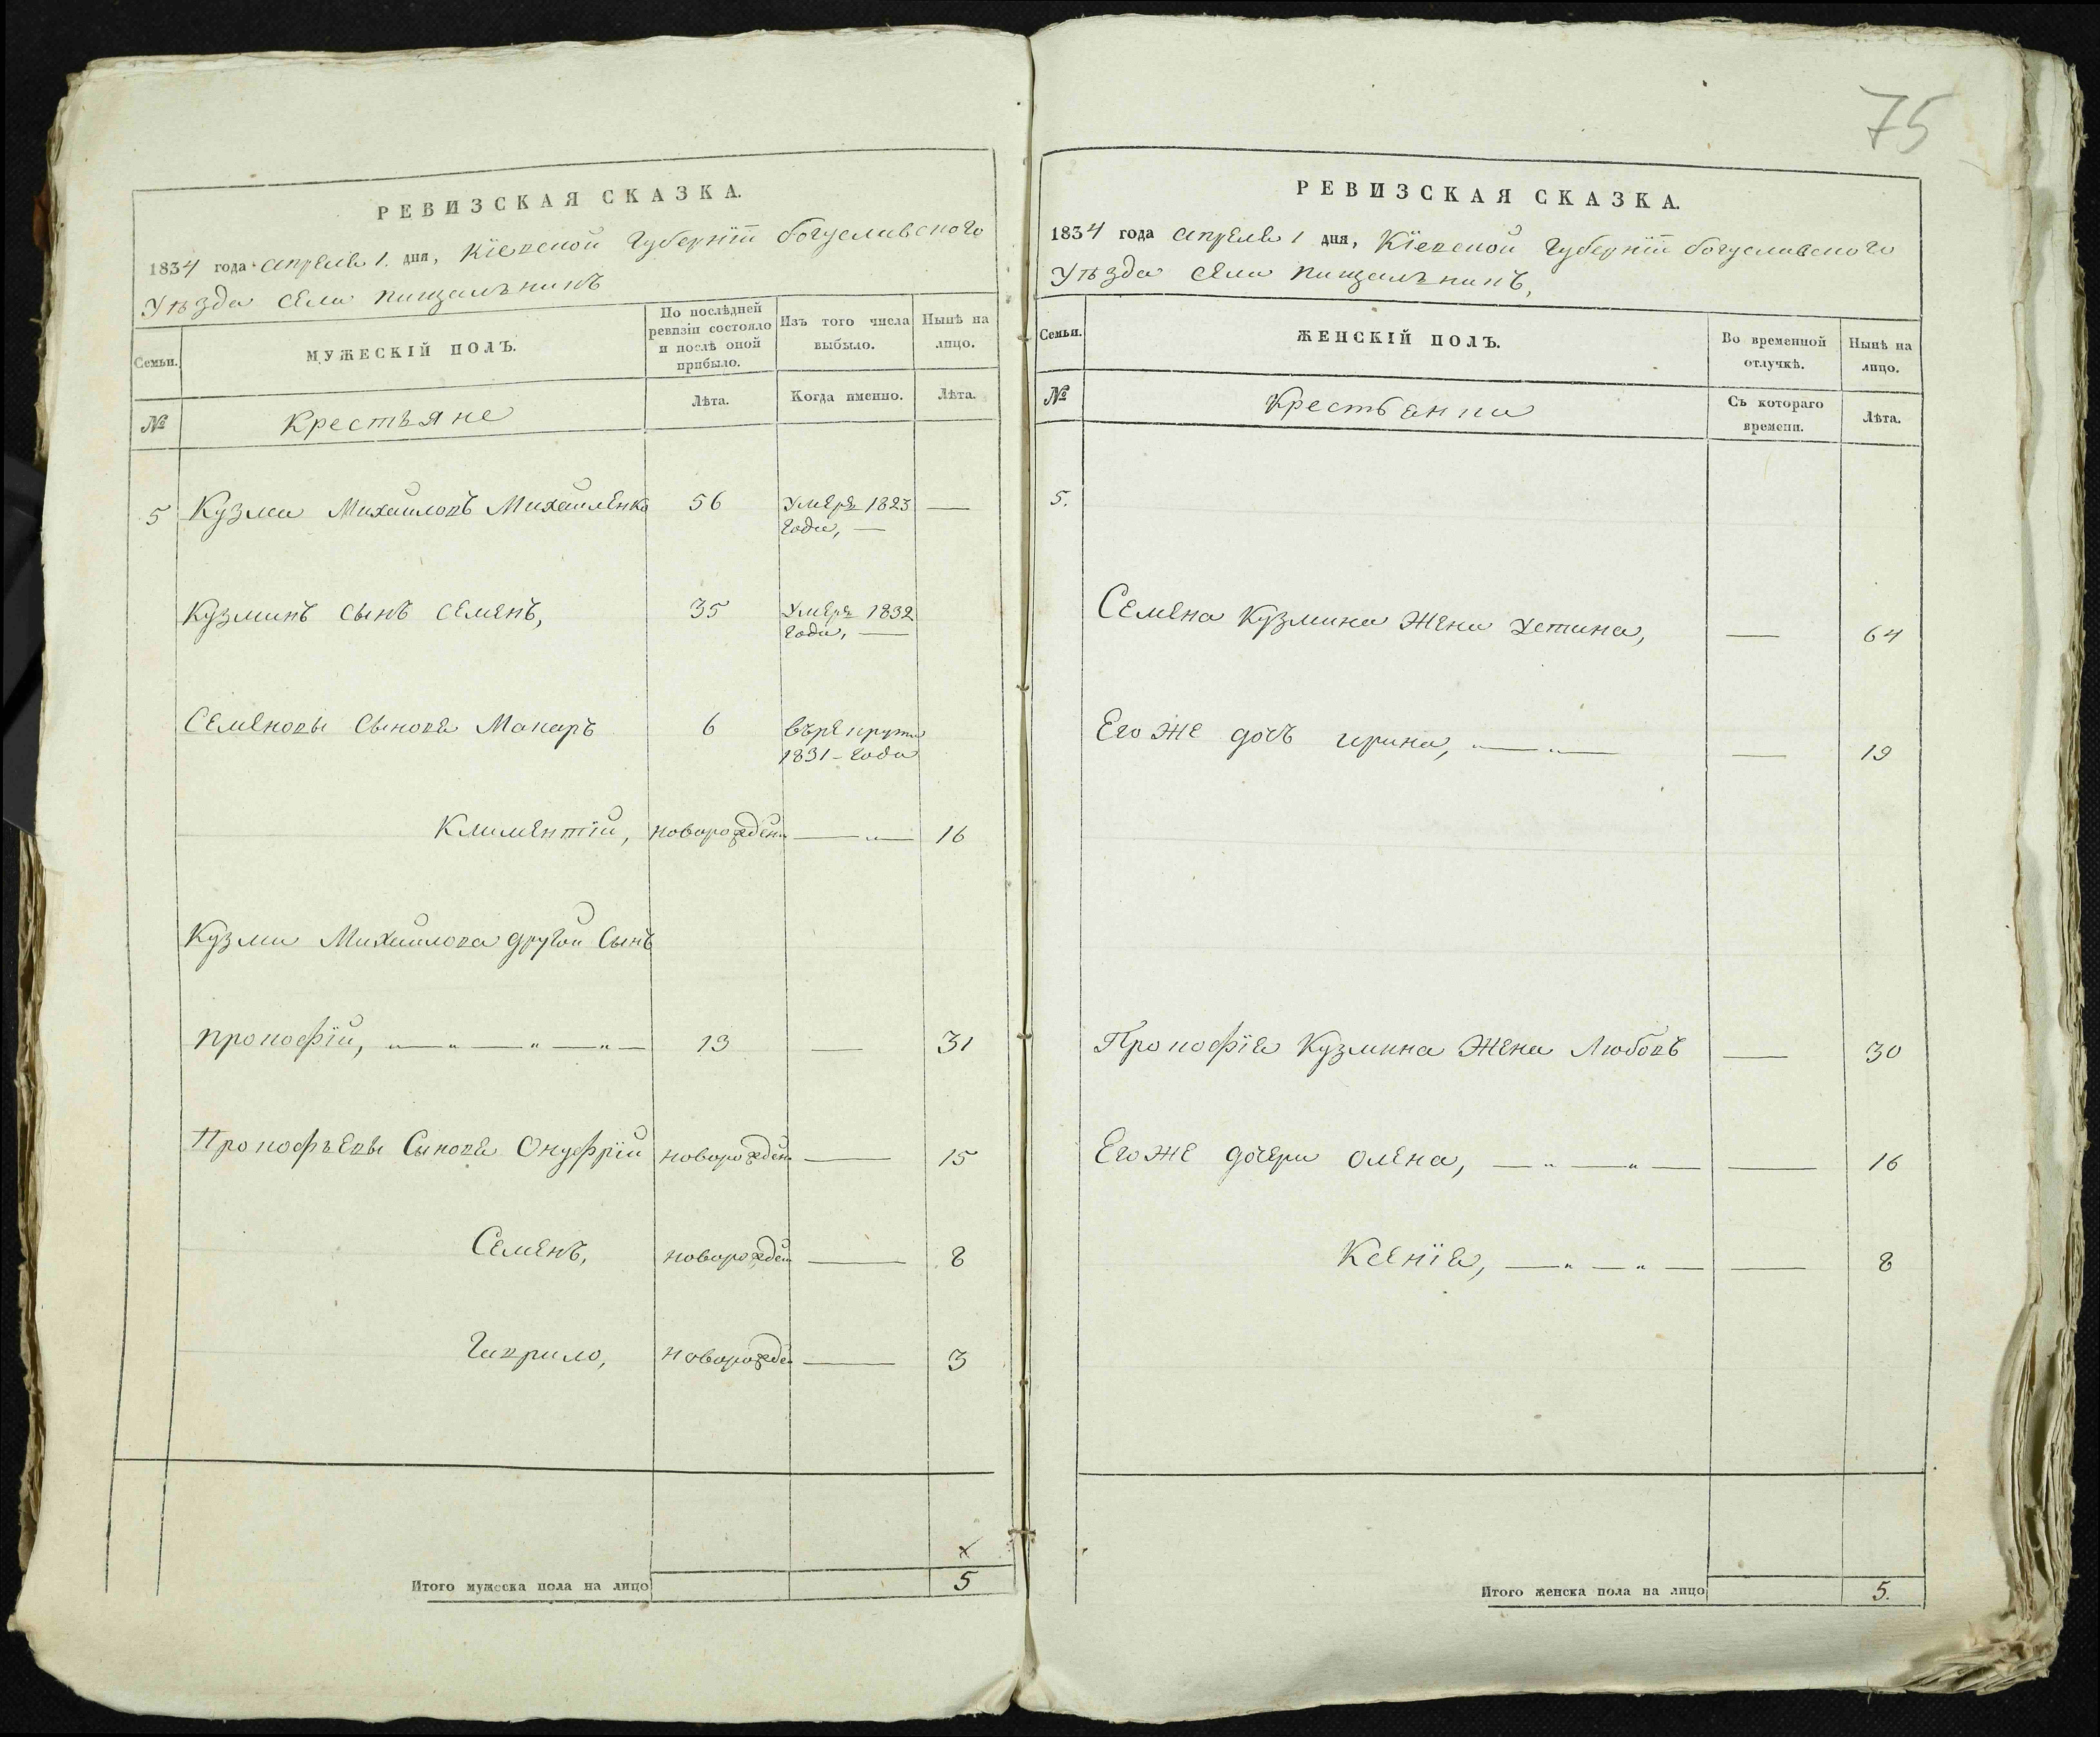 РЕВИЗСКАЯ СКАЗКА.
1834 года апреля 1. дня, Кіевской Губерніи богуславского
Уѣзда села пищальникъ
Семьи.
МУЖЕСКІЙ ПОЛЪ.
По послѣдней ревизіи состояло и послѣ оной прибыло.
Изъ того числа выбыло.
Нынѣ на лицо.
№
Крестьяне
Лѣта.
Когда именно.
Лѣта.
5 Кузма Михайловъ Михайленко 56 Умеръ 1823 —
года, —
Кузминъ сынъ семенъ, 35 Умеръ 1832
года, —
Семеновы сыновя Макаръ 6 въ рекруты
1831 - года
Климентій, новорожден — „ — 16
Кузмы Михайлова другой Сынъ
прокофій, „ — „ — „ — „ — 13 — 31
Прокофьевы Сыновя Онуфрій новорожден — 15
Семенъ, новорожден — 8
Гаврило, новорожден — 3
х
Итого мужеска пола на лицо 5
75
РЕВИЗСКАЯ СКАЗКА.
1834 года апреля 1 дня, Кіевской Губерніи богуславского
Уѣзда села пищальникъ,
Семьи.
ЖЕНСКІЙ ПОЛЪ.
Во временной отлучкѣ.
Нынѣ на лицо.
№
Крестьянки
Съ котораго времени.
Лѣта.
5.
Семена Кузмина жена устина, — 64
Его же дочь ирина, — „ — — 19
Прокофія Кузмина Жена Любовъ — 30
Его же дочери олена, — „ — „ — — 16
Ксенія, — „ — „ — — 8
Итого женска пола на лицо 5.